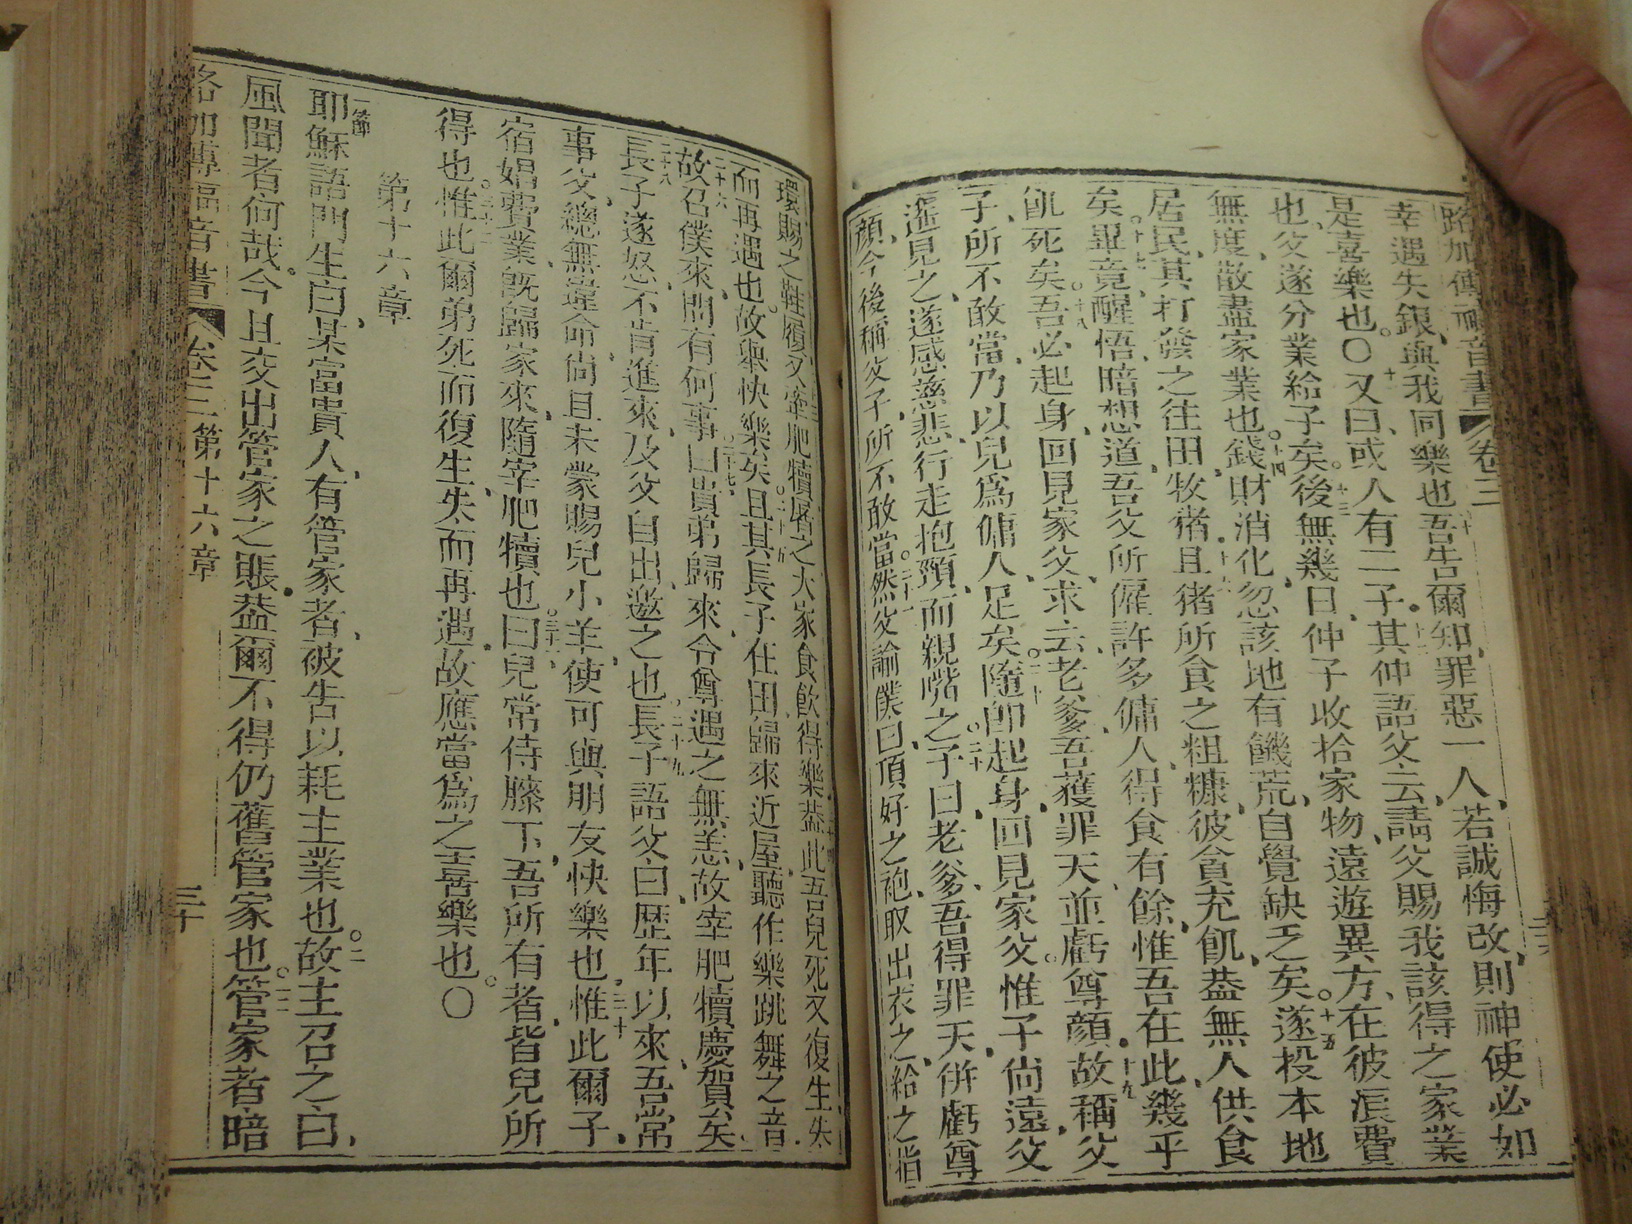 路加傳福音書 卷三
幸遇失銀、與我同樂也。十吾告爾知、罪惡一人、若誠悔改、則神使必如
是喜樂也。〇十一又曰、或人有二子。十二其仲語父云、請父賜我該得之家業
也、父遂分業給子矣。十三後無幾日、仲子收拾家物、遠遊異方、在彼浪費
無度、散盡家業也。十四錢財消化、忽該地有饑荒、自覺缺乏矣。十五遂投本地
居民、其打發之往田、牧猪。十六且猪所食之粗糠、彼貪充飢、葢無人供食
矣。十七畢竟醒悟、暗想道、吾父所僱許多傭人、得食有餘、惟吾在此、幾乎
飢死矣。十八吾必起身、回見家父、求云、老爹、吾獲罪天、並虧尊顏。十九故稱父
子、所不敢當、乃以兒爲傭人、足矣。二十隨卽起身、回見家父。惟子尙遠、父
遙見之、遂感慈悲、行走抱頸、而親嘴之。二十一子曰、老爹、吾得罪天、併虧尊
顏、今後稱父子、所不敢當。二十二然父諭僕曰、頂好之袍、取出衣之、給之指
環、賜之鞋履。二十三又牽肥犢屠之、大家食飲得樂。葢此吾兒死又復生、失
而再遇也。故與快樂矣。二十五且其長子在田、歸來近屋、聽作樂跳舞之音。
二十六故召僕來、問有何事。二十七曰、貴弟歸來、令尊遇之無恙、故宰肥犢慶賀矣。
二十八長子遂怒、不肯進來、及父自出、邀之也。二十九長子語父曰、歷年以來、吾常
事父、總無違命、尙且未蒙賜兒小羊、使可與朋友快樂也。三十惟此爾子、
宿娼費業、旣歸家來、隨宰肥犢也。三十一曰、兒常侍膝下、吾所有者、皆兒所
得也。三十二惟此爾弟、死而復生、失而再遇、故應當爲之喜樂也。〇
第十六章
一節耶穌語門生曰、某富貴人、有管家者、被告以耗主業也。二故主召之曰、
風聞者何哉。今且交出管家之賬、葢爾不得仍舊管家也。三管家者暗
路加傳福音書 卷三 第十六章 三十